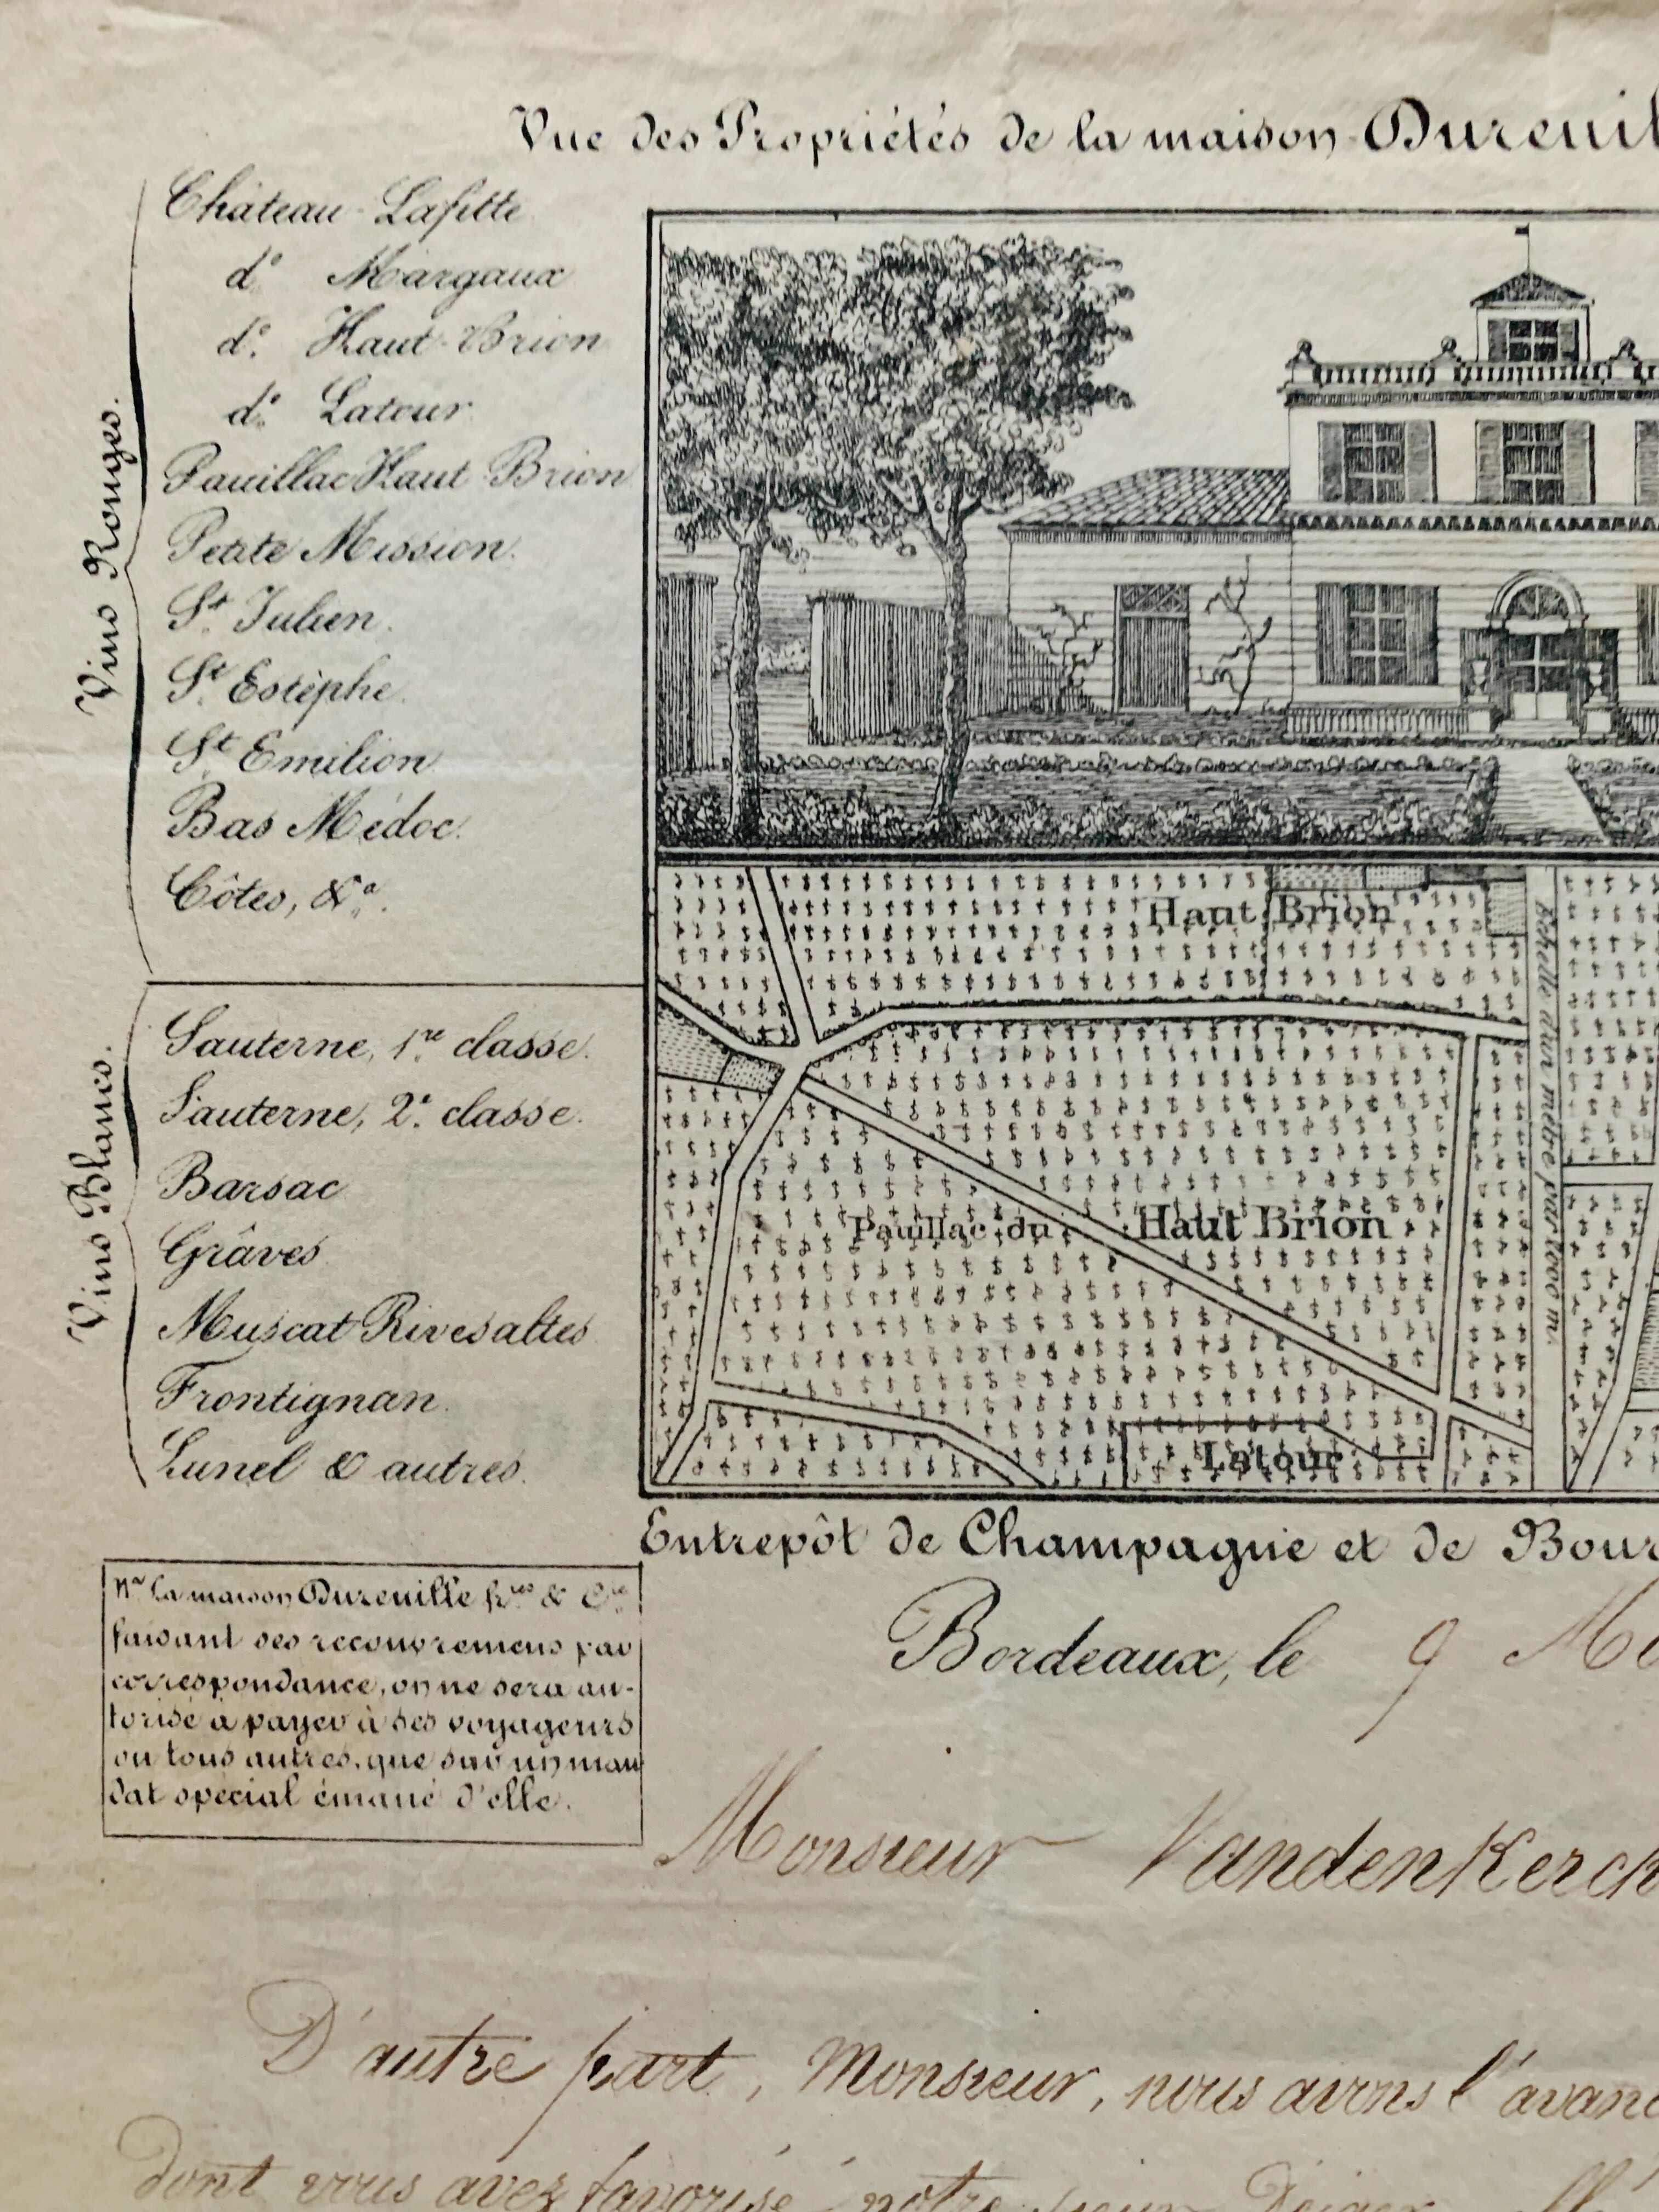 Vue des Propriétés de la maison Dureuil
Vins Rouges.
Château-Lafitte
d.º Margaux
d.º Haut-Brion
d.º Latour
Pauillac Haut-Brion
Petite Mission.
S.t Julien.
S.t Estèphe.
S.t Emilion.
Bas Médoc.
Côtes, &.a
Vins Blancs.
Sauterne, 1.re classe.
Sauterne, 2.e classe.
Barsac
Grâves
Muscat Rivesaltes
Frontignan.
Lunel & autres.
Haut Brion
Echelle d'un mètre par 1000 m.
Pauillac du Haut Brion
Latour
Entrepôt de Champagne et de Bour
N.a La maison Dureuille & C.ie
faisant ses recouvremens par
correspondance, on ne sera au-
torisé à payer à ses voyageurs
ou tous autres, que sur un man
dat spécial émané d'elle.
Bordeaux, le 9
Monsieur VandenKerck
D'autre part, Monsieur, nous avons l'avan
dont vous avez favorisé notre sieur